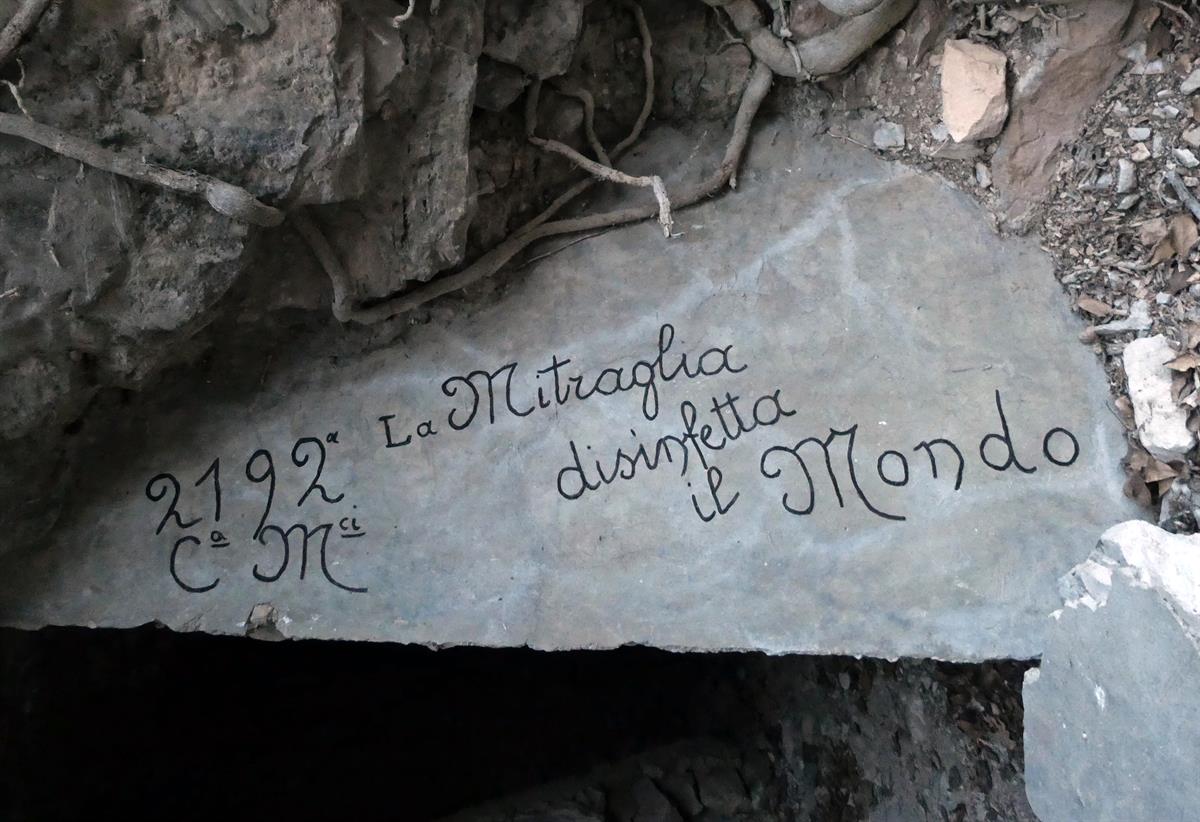 2192ª
Cª Mci
La Mitraglia
disinfetta
il Mondo